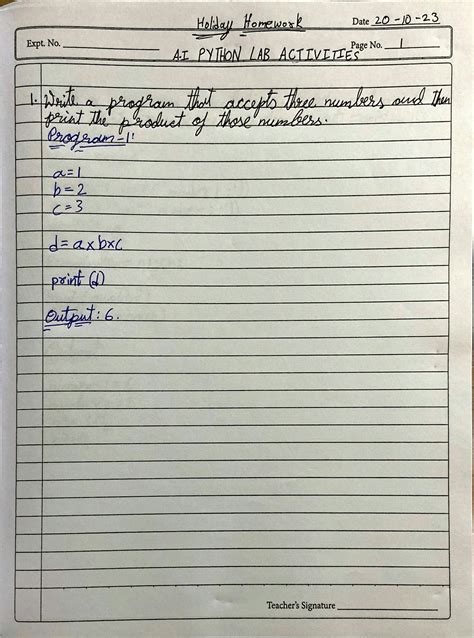 Holiday Homework
Date 20-10-23
Expt. No.
Page No. 1
A.I PYTHON LAB ACTIVITIES
1. Write a program that accepts three numbers and then
print the product of those numbers.
Program-1:
a=1
b=2
c=3
d=axbxc
print (d)
Output: 6.
Teacher's Signature